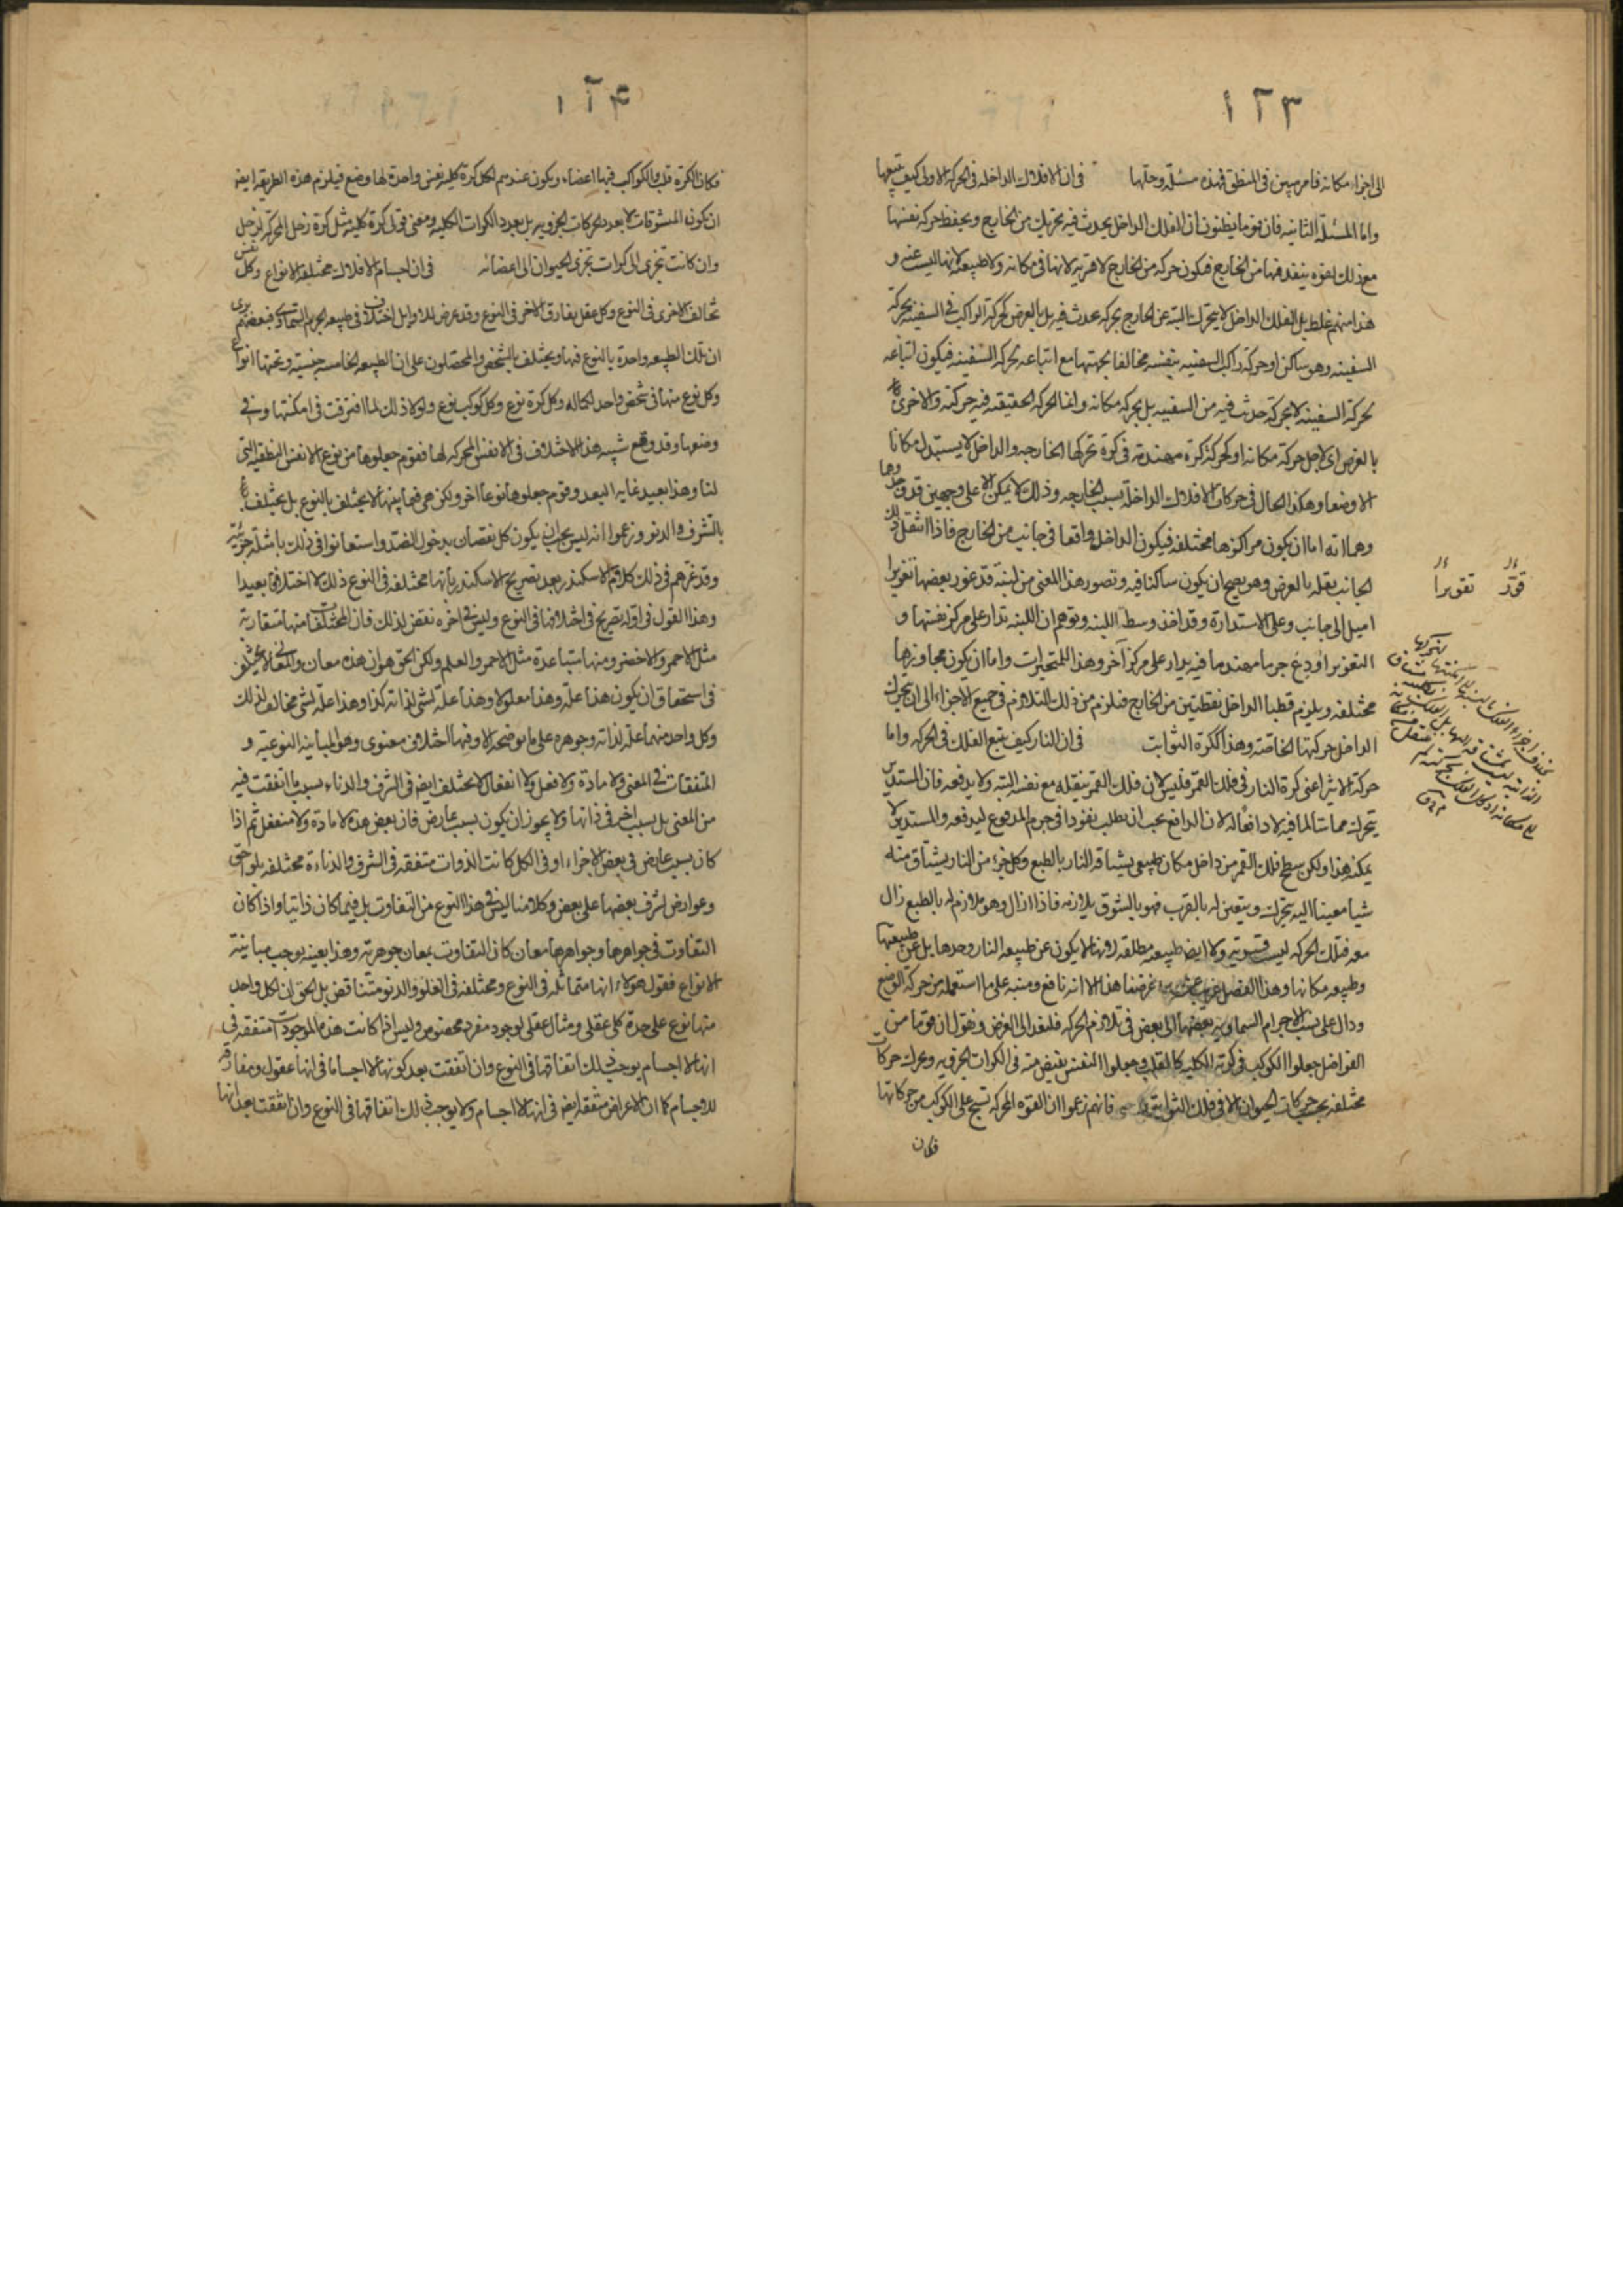 ١٢٣
الى اجزاء مكانه فامر مبين فى المنطق فهذه مسئلة وحلّها فى ان الافلاك الداخله فى الحركه الاولى كيف يتبعها
واما المسئلة الثانيه فان قوما يظنون ان الفلك الداخل يحدث فيه تحريك من الخارج ويحفظ حركه نفسها
مع ذلك لقوه ينفذ فيها من الخارج فيكون حركه من الخارج لا قسريه لانها فى مكانه ولا طبيعيه لانها ليست عنه و
هذا منهم غلط بل الفلك الداخل لا يتحرك البتة عن الخارج بحركه تحدث فيه بل بالعرض كحركة الراكب فى السفينه بحركة
السفينه وهو ساكن او حركة راكب السفينه بنفسه مخالفا لجهتها مع اتباعه لحركه السفينه فيكون اتباعه
لحركة السفينه لا بحركة حدث فيه من السفينه بل بحركه مكانه وانما الحركه الحقيقيه فيه حركته والاخرى
بالعرض اى لاجل حركة مكانه او كحركة كرة مهندمة فى كرة تحركها الخارجه والداخل لا يستبدل مكانا
الا وضعا وهكذا الحال فى حركات الافلاك الداخلة بسبب الخارجه وذلك لا يمكن الا على وجهين قد وجدوها
وهما انه اما ان يكون مراكزها مختلفه فيكون الداخل واقعا فى جانب من الخارج فاذا انتقل ذلك
الجانب نقله بالعرض وهو يصح ان يكون ساكنا فيه وتصور هذا المعنى من لبنة قد غور بعضها تغويرا
اميل الى جانب وعلى الاستدارة وقد اخذ وسط اللبنه وتوهم ان اللبنه تدار على مركز نفسها و
التغوير اودع جرما مهندما فيه يدار على مركز آخر وهذا للمتحيرات واما ان يكون محاورها
مختلفه ويلزم قطبا الداخل نقطتين من الخارج فيلزم من ذلك التلازم فى جميع الاجزاء الى ان يتحرك
الداخل حركتها الخاصّة وهذا لكرة الثوابت فى ان النار كيف يتبع الفلك فى الحركه واما
حركة الاثير اعنى كرة النار فى فلك القمر فليس لان فلك القمر ينقله مع نفسه البتة ولا يدفعه فان المستدير
يتحرك مماسا لما فيه لا دافعا له لان الدافع يجب ان يطلب نفوذا فى جرم المدفوع ليدفعه والمستدير لا
يمكنه هذا ولكن سطح فلك القمر من داخل مكان طبيعى يشتاقه النار بالطبع وكل جزء من النار يشتاق منه
شيا معينا اليه يتحرك ويتعين له بالقرب فهو بالشوق يلازمه فاذا زال وهو ملازم له بالطبع زال
معه فتلك الحركه ليست قسريه ولا ايضا طبيعيه مطلقه لانها لا يكون عن طبيعه النار وحدها بل عن طبيعتها
وطبيعه مكانها وهذا الفصل غريب عن غرضنا هذا الا انه نافع ومنبه على ما استعمله من حركة الوضع
ودال على نسب الاجرام السماويه بعضها الى بعض فى تلازم الحركه فلنعد الى الغرض ونقول ان قوما من
الفراضل جعلوا الكوكب فى كرته الكليه كالقلب وجعلوا النفس يفيض منه فى الكرات الجزويه وتحرك حركات
مختلفه بحسب حركات الحيوان الا فى فلك الثوابت فانهم زعموا ان القوه المحركه تسبح على الكواكب من حركاتها
فكان
قوّر تقويرا
١٢٤
فكان الكرة قلب والكواكب فيها اعضاء ويكون عندهم لكل كرة كليه نفس واحدة لها وضع فيلزم هذه الطريقه ايضا
ان يكون المتشوقات لا بعدد الحركات الجزويه بل بعدد الكرات الكليه ومعنى قولى كرة كليه مثل كرة زحل المحركه لزحل
وان كانت تجزى الى كرات تجزى الحيوان الى اعضائه فى ان اجسام الافلاك مختلفه الانواع وكل نفس
تخالف الاخرى فى النوع وكل عقل يفارق الاخر فى النوع وقد عرض للاوايل اختلاف فى طبيعه الجرم السماوى فبعضهم يرى
ان تلك الطبيعه واحدة بالنوع فيها ويختلف بالشخص والمحصلون على ان الطبيعه الخامسه جنسيه وتحتها انواع
وكل نوع منها فى شخص واحد لكماله وكل كرة نوع وكل كوكب نوع ولولا ذلك لما افترقت فى امكنتها وفى
وضعها وقد وقع شبيه هذا الاختلاف فى الانفس المحركه لها فقوم جعلوها من نوع الانفس النطقيه التى
لنا وهذا بعيد غايه البعد وقوم جعلوها نوعا آخر ولكن هى فيما بينها لا يختلف بالنوع بل يختلف
بالشرف والدنو وزعموا انه ليس يجب ان يكون كل نقصان بدخول الضد واستعانوا فى ذلك بامثلة جزئيّة
وقد غرهم فى ذلك كلام الاسكندر بعد تصريح الاسكندر بانها مختلفه فى النوع ذلك الاختلاف بعيدا
وهذا القول فى اوله تصريح فى اختلافها فى النوع وليس فى اخره نقض لذلك فان المختلفات منها متقاربه
مثل الاحمر والاخضر ومنها متباعدة مثل الاحمر والعلم ولكن الحق هو ان هذه معان
فى استحقاق ان يكون هذا علّة وهذا معلولا وهذا علّة لشى لذاته كذا وهذا علّة لشى مخالف لذلك
وكل واحد منها علة لذاته وجوهره على ما نوضحه الا وفيها اختلاف معنوى وهو المباينه النوعيّه و
المتفقات فى المعنى ولا مادة ولا فعل ولا انفعال لا يختلف ايضا فى الشرف والدناءه بسبب ما اتفقت فيه
من المعنى بل بسبب آخر فى ذاتها ولا يجوز ان يكون بسبب عارض فان بعض هذه لا مادة ولا منفعل ثم اذا
كان بسبب عارض فى بعض الاجزاء او فى الكل كانت الذوات متفقه فى الشرف والدناءة مختلفه بلواحق
وعوارض لشرف بعضها على بعض وكلامنا ليس فى هذا النوع من التفاوت بل فيما كان ذاتيا واذا كان
التفاوت فى جواهرها وجواهرها معان كان التفاوت بمعان جوهريّه وهذا بعينه يوجب مباينة
الانواع فقول هؤلاء انها متماثله فى النوع ومختلفه فى العلوّ والدنو متناقض بل الحق ان لكل واحد
منها نوع على حدة كلى عقلى ومثال عقلى لوجود مفرد مخصوص وليس اذا كانت هذه الموجودات متفقه فى
انها لا اجسام يوجب ذلك اتفاقها فى النوع وان اتفقت بعد كونها لا اجساما فى انها عقول ومفارقه
للاجسام كما ان الاعراض متفقه ايضا فى انها لا اجسام ولا يوجب ذلك اتفاقها فى النوع وان اتفقت بعد انها